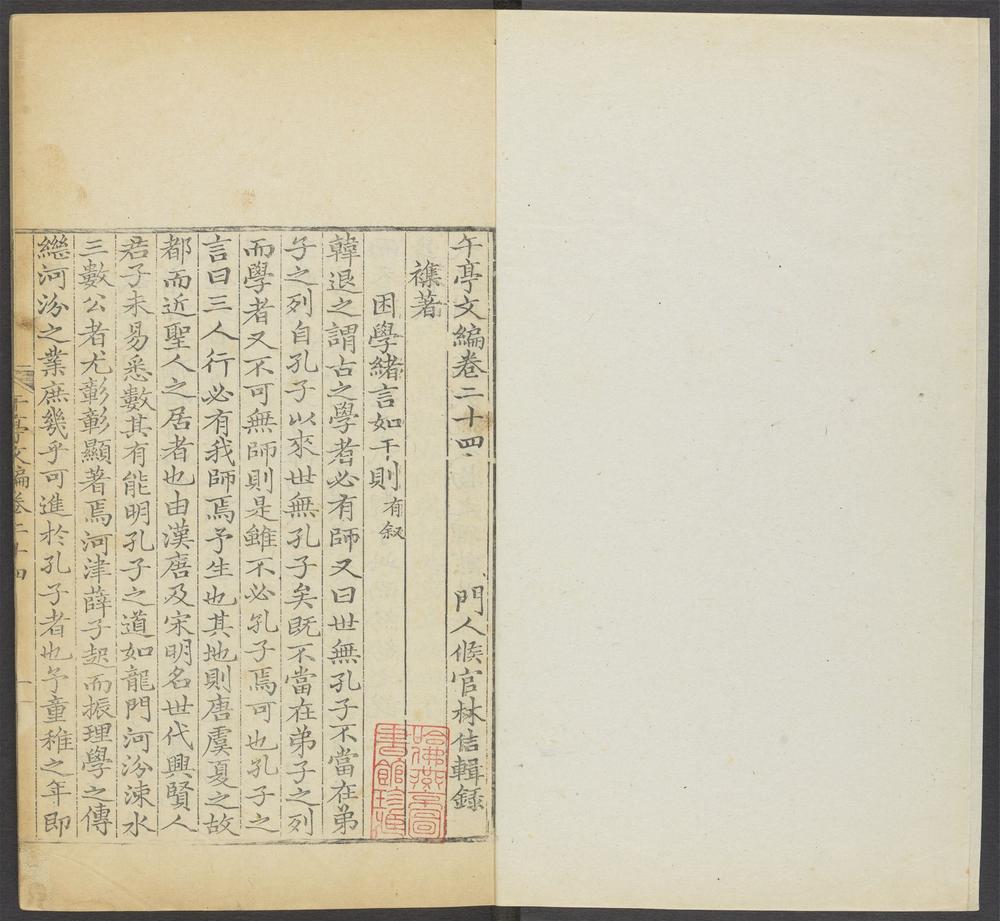 午亭文編卷二十四　門人候官林佶輯錄
襍著
困學緒言如干則有叙
韓退之謂古之學者必有師又曰世無孔子不當在弟
子之列自孔子以來世無孔子矣既不當在弟子之列
而學者又不可無師則是雖不必孔子焉可也孔子之
言曰三人行必有我師焉予生也其地則唐虞夏之故
都而近聖人之居者也由漢唐及宋明名世代興賢人
君子未易悉數其有能明孔子之道如龍門河汾涑水
三數公者尤彰彰顯著焉河津薛子起而振理學之傳
繼河汾之業庶幾乎可進於孔子者也予童稚之年即
午亭文編卷二十四　一
哈佛燕京圖
書館珍藏